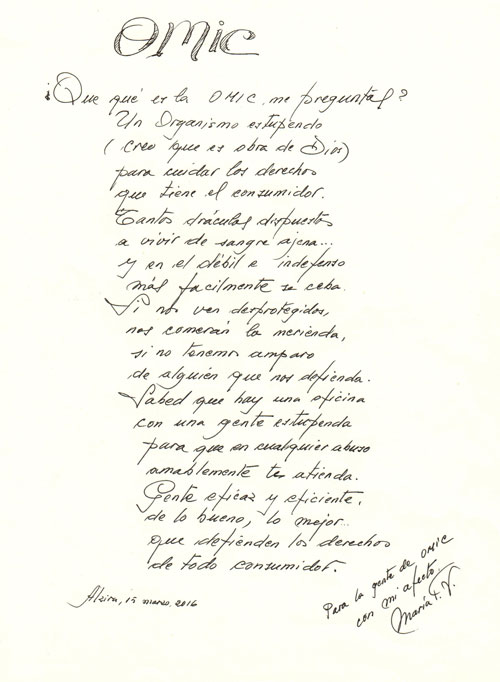 OMic
¿Que qué es la OMIC, me preguntas?
Un Organismo estupendo
(creo que es obra de Dios)
para cuidar los derechos
que tiene el consumidor.
Tantos dráculas dispuestos
a vivir de sangre ajena...
y en el débil e indefenso
más facilmente se ceba.
Si nos ven desprotegidos,
nos comerán la merienda,
si no tenemos amparo
de alguien que nos defienda.
Sabed que hay una oficina
con una gente estupenda
para que en cualquier abuso
amablemente te atienda.
Gente eficaz y eficiente,
de lo bueno, lo mejor..
que defienden los derechos
de todo consumidor.
Alzira, 15 marzo, 2016
Para la gente de OMIC
con mi afecto.
María F. V.